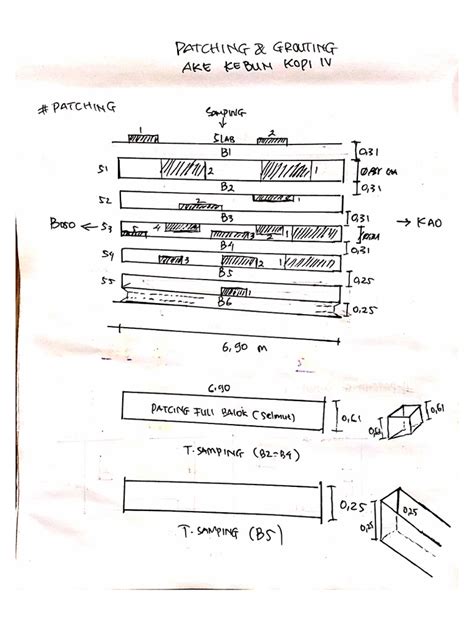 PATCHING & GROUTING
AKE KEBUN KOPI IV
# PATCHING
SAMPING
1 SLAB 2
B1 0,31
S1 2 1
B2 0,31
S2 2 1
B3 0,31
BOSO ← S3 5 4 3 2 1 → KAO
B4 0,31
S4 3 2 1
B5 0,25
S5 1
B6 0,25
6,90 m
6.90
PATCING FULL BALOK (Selimut) 0,61 0,61
0,61
T. SAMPING (B2-B4)
0,25 0,25
0,25
T. SAMPING (B5)